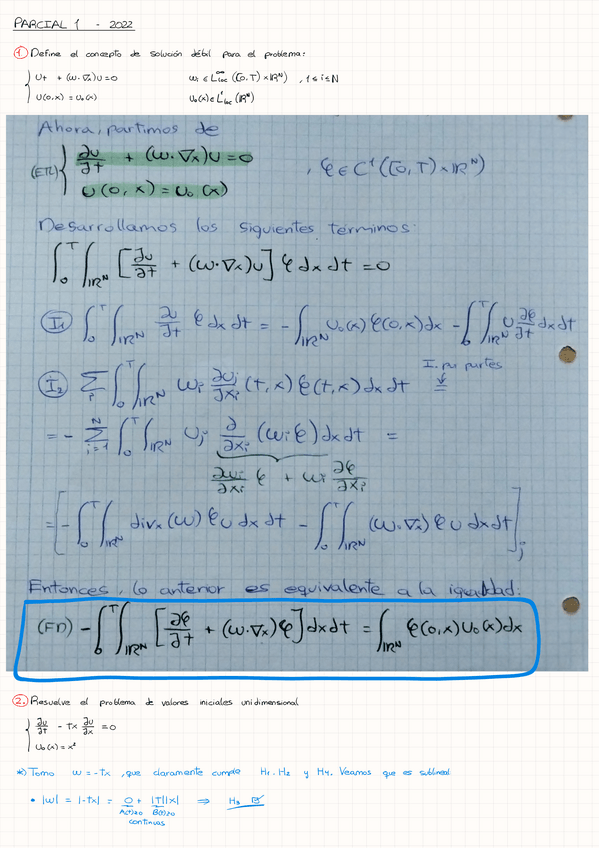 PARCIAL 1 - 2022
1. Define el concepto de solución débil para el problema:
{ Ut + (w·∇x)U = 0      wi ∈ L^∞_loc ([0,T)×ℝ^N), 1≤i≤N
U(0,x) = U0(x)      U0(x) ∈ L^1_loc (ℝ^N)
Ahora, partimos de
(ETL) { ∂u/∂t + (w·∇x)U = 0 , φ ∈ C^1([0,T)×ℝ^N)
U(0,x) = U0(x)
Desarrollamos los siguientes términos:
∫_0^T ∫_ℝ^N [∂u/∂t + (w·∇x)u] φ dx dt = 0
(I1) ∫_0^T ∫_ℝ^N ∂/∂t φ dx dt = - ∫_ℝ^N U0(x) φ(0,x) dx - ∫_0^T ∫_ℝ^N U ∂φ/∂t dx dt
I. por partes
(I2) Σ_i ∫_0^T ∫_ℝ^N wi ∂uj/∂xi (t,x) φ(t,x) dx dt ⇓
= - Σ_{i=1}^N ∫_0^T ∫_ℝ^N Uj ∂/∂xi (wi φ) dx dt =
∂wi/∂xi φ + wi ∂φ/∂xi
= [- ∫_0^T ∫_ℝ^N divx(w) φ U dx dt - ∫_0^T ∫_ℝ^N (w·∇x) φ U dx dt]_j
Entonces, lo anterior es equivalente a la igualdad:
(FD) - ∫_0^T ∫_ℝ^N [∂φ/∂t + (w·∇x)φ] dx dt = ∫_ℝ^N φ(0,x) U0(x) dx
2. Resuelve el problema de valores iniciales unidimensional
{ ∂u/∂t - Tx ∂u/∂x = 0
U0(x) = x²
*) Tomo w = -Tx, que claramente cumple H1, H2 y H4. Veamos que es sublineal
• |w| = |-Tx| = 0 + |T||x| ⇒ H3 ☑
A(t)≥0 B(t)≥0
continuas